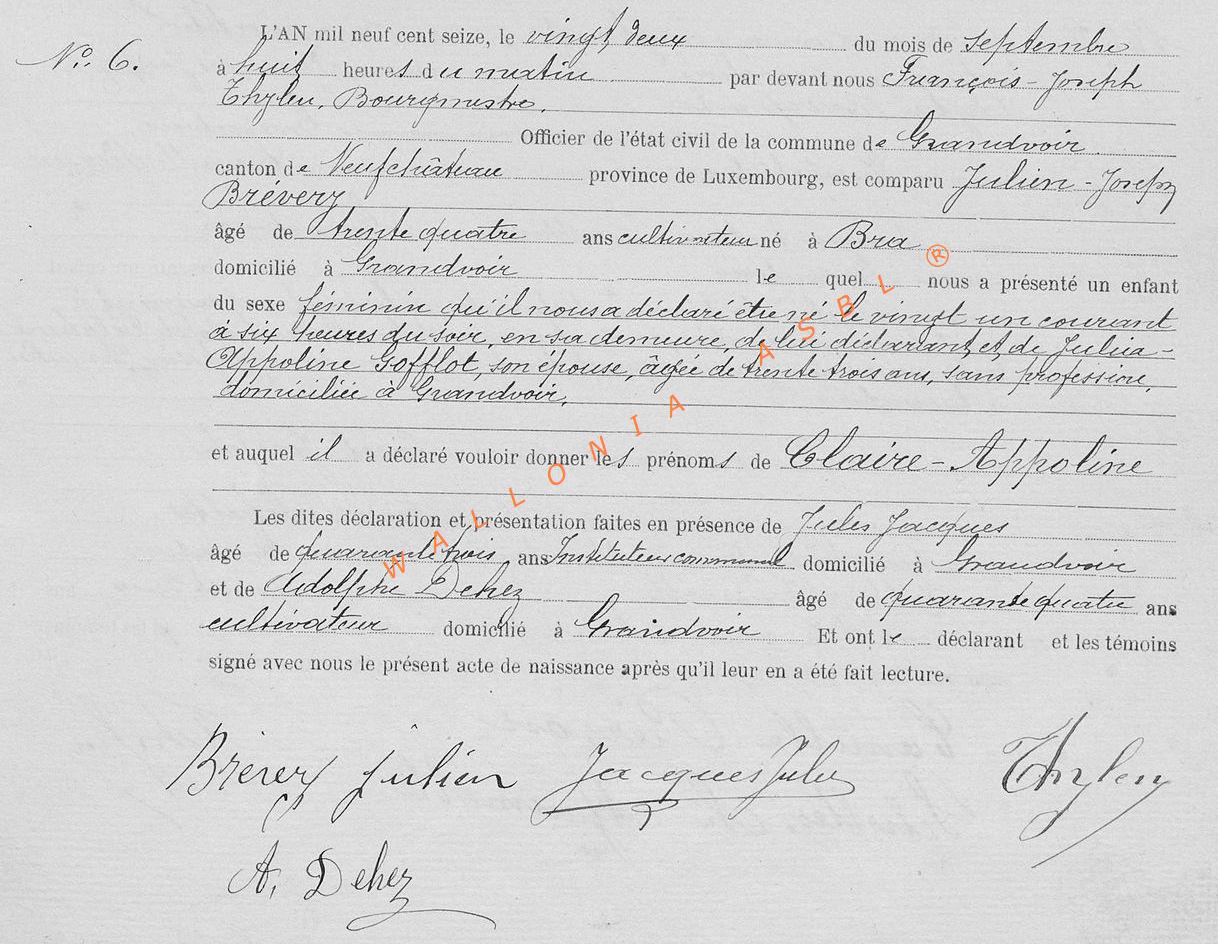 L'AN mil neuf cent seize, le vingt deux du mois de septembre
N° 6.
à huit heures du matin par devant nous François-Joseph
Thylen, Bourgmestre,
Officier de l'état civil de la commune de Grandvoir
canton de Neufchâteau province de Luxembourg, est comparu Julien-Joseph
Brévery
âgé de trente quatre ans cultivateur né à Bra
domicilié à Grandvoir lequel nous a présenté un enfant
du sexe féminin qu'il nous a déclaré être né le vingt un courant
à six heures du soir, en sa demeure, de lui déclarant et de Julia-
Appoline Gofflot, son épouse, âgée de trente trois ans, sans profession,
domiciliée à Grandvoir,
et auquel il a déclaré vouloir donner les prénoms de Claire-Appoline
Les dites déclaration et présentation faites en présence de Jules Jacques
âgé de quarante trois ans Instituteur communal domicilié à Grandvoir
et de Adolphe Dehez âgé de quarante quatre ans
cultivateur domicilié à Grandvoir Et ont le déclarant et les témoins
signé avec nous le présent acte de naissance après qu'il leur en a été fait lecture.
Brévery Julien Jacques Jules Thylen
A. Dehez
WALLONIA ASBL ®